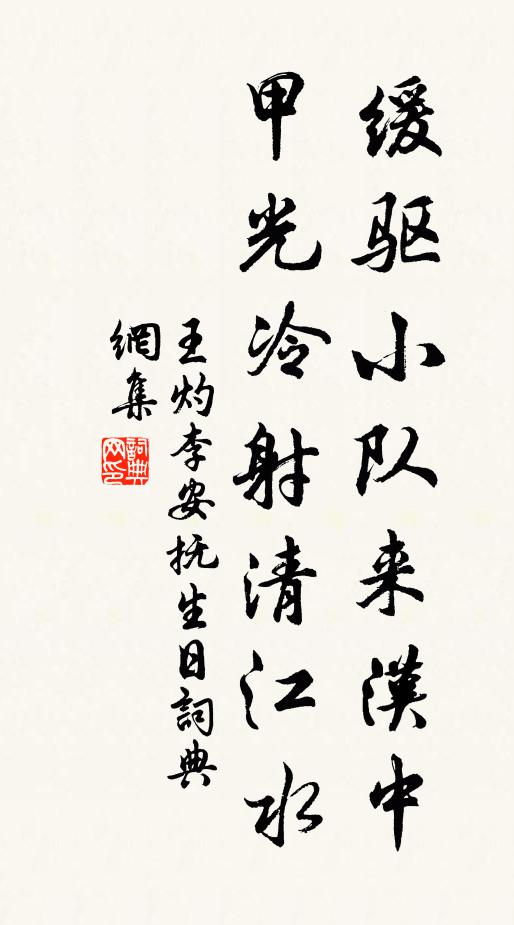 缓驱小队来漢中
甲光冷射清江水
王灼李安抚生日詞典
網集
詞典
网印